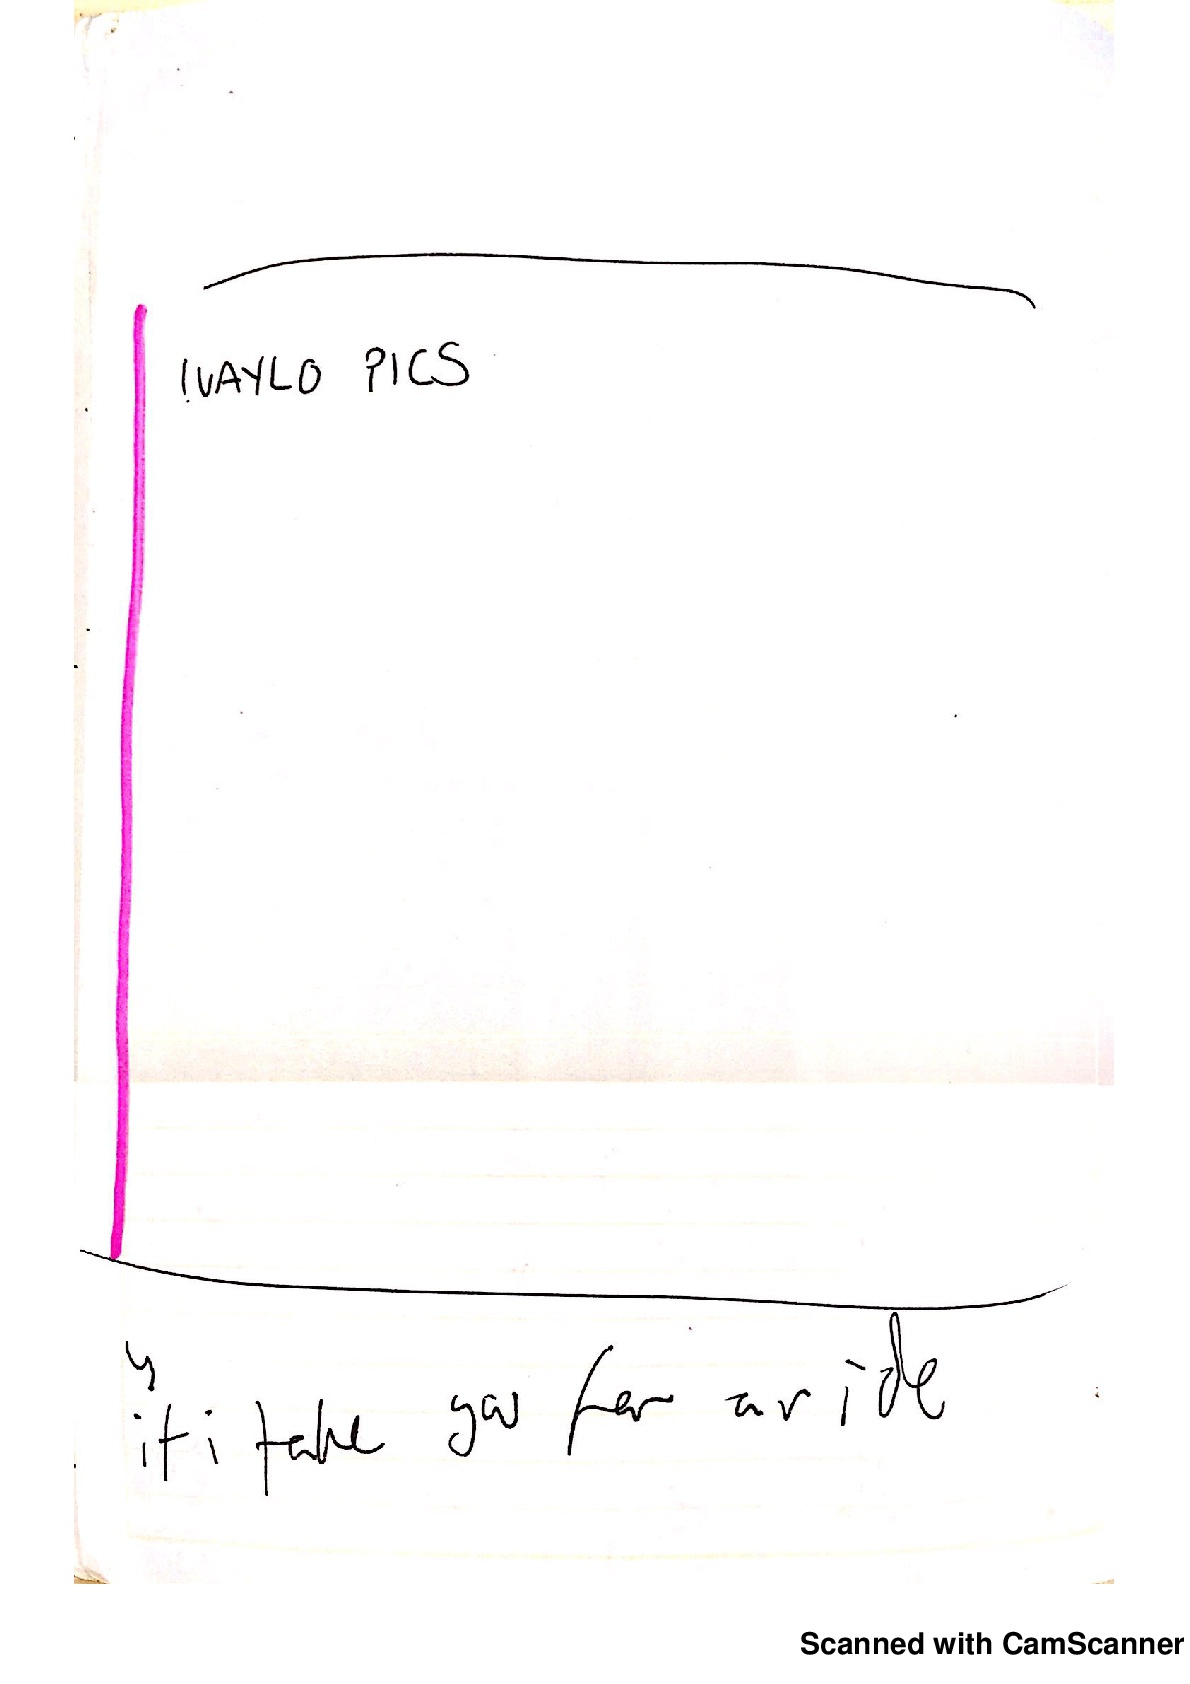 IVAYLO PICS
if i take you for a ride
Scanned with CamScanner